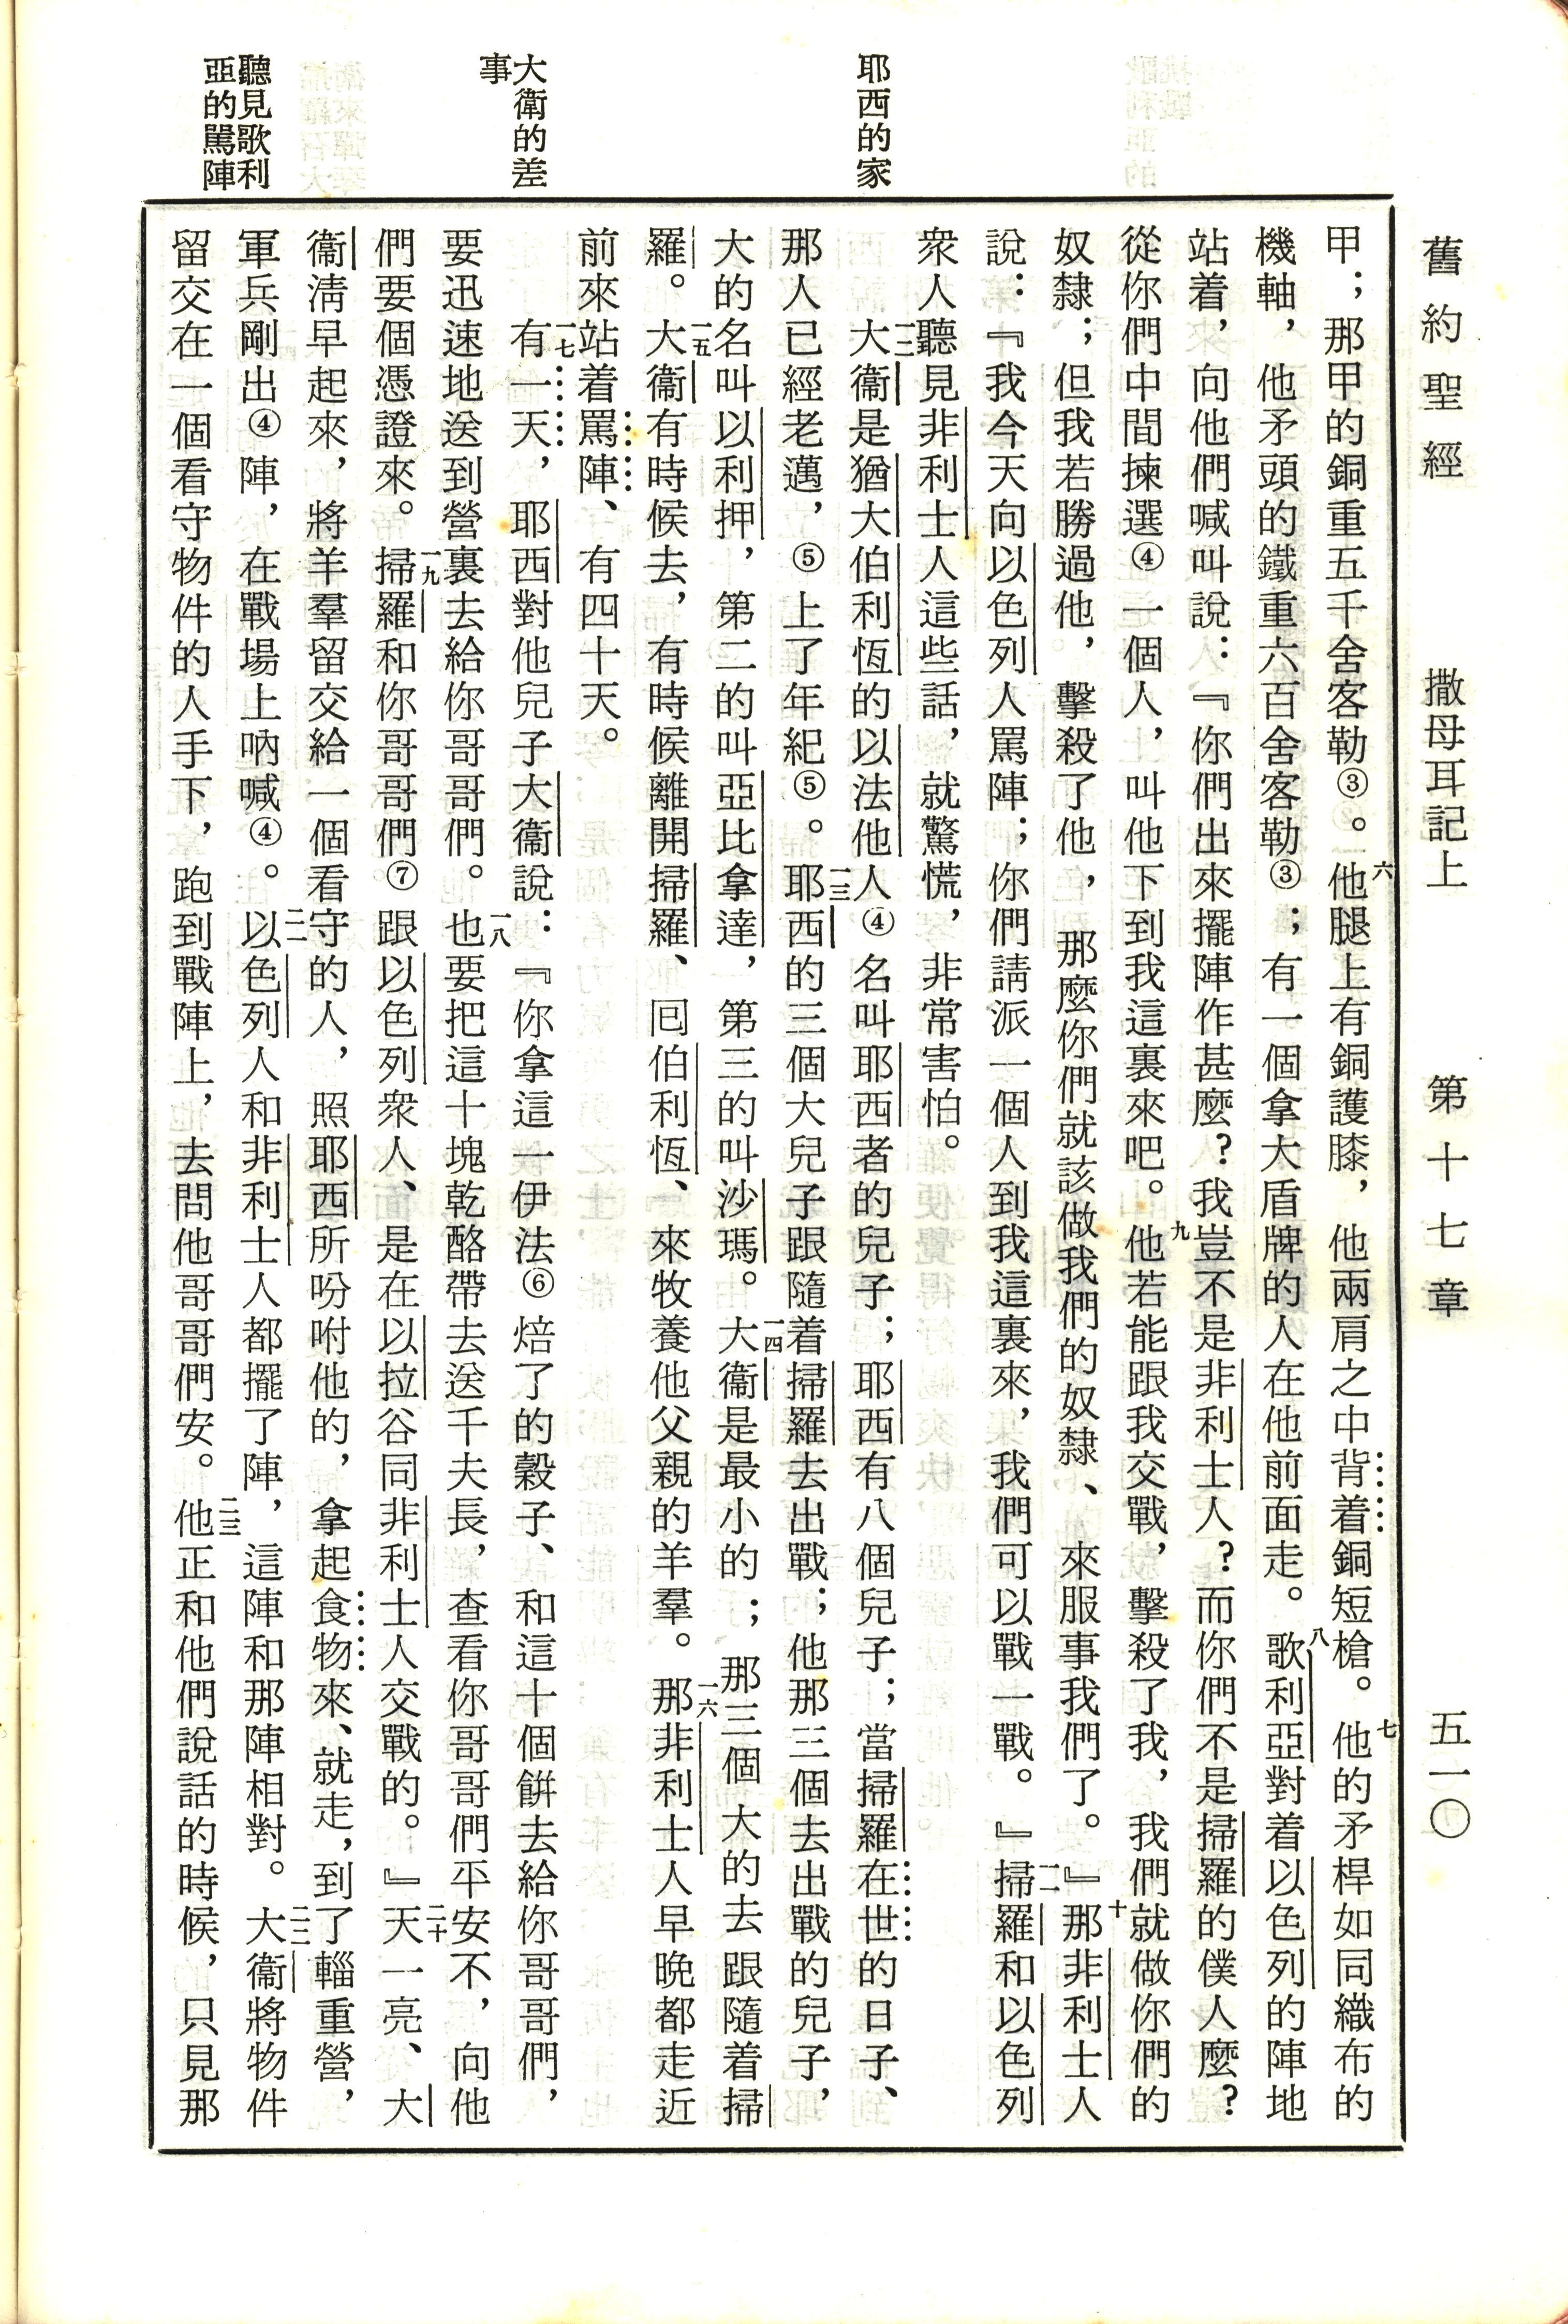 舊約聖經　撒母耳記上　第十七章　五一〇
耶西的家
大衞的差
事
聽見歌利
亞的駡陣
甲；那甲的銅重五千舍客勒③。六他腿上有銅護膝，他兩肩之中背着銅短槍。七他的矛桿如同織布的
機軸，他矛頭的鐵重六百舍客勒③；有一個拿大盾牌的人在他前面走。八歌利亞對着以色列的陣地
站着，向他們喊叫說：『你們出來擺陣作甚麼？我豈不是非利士人？而你們不是掃羅的僕人麼？
從你們中間揀選④一個人，叫他下到我這裏來吧。九他若能跟我交戰，擊殺了我，我們就做你們的
奴隸；但我若勝過他，擊殺了他，那麼你們就該做我們的奴隸、來服事我們了。』十那非利士人
說：『我今天向以色列人駡陣；你們請派一個人到我這裏來，我們可以戰一戰。』一一掃羅和以色列
衆人聽見非利士人這些話，就驚慌，非常害怕。
一二大衞是猶大伯利恆的以法他人④名叫耶西者的兒子；耶西有八個兒子；當掃羅在世的日子、
那人已經老邁，⑤上了年紀⑤。一三耶西的三個大兒子跟隨着掃羅去出戰；他那三個去出戰的兒子，
大的名叫以利押，第二的叫亞比拿達，第三的叫沙瑪。一四大衞是最小的；那三個大的去跟隨着掃
羅。一五大衞有時候去，有時候離開掃羅、囘伯利恆、來牧養他父親的羊羣。一六那非利士人早晚都走近
前來站着駡陣、有四十天。
一七有一天，耶西對他兒子大衞說：『你拿這一伊法⑥焙了的穀子、和這十個餅去給你哥哥們，
要迅速地送到營裏去給你哥哥們。一八也要把這十塊乾酪帶去送千夫長，查看你哥哥們平安不，向他
們要個憑證來。一九掃羅和你哥哥們⑦跟以色列衆人、是在以拉谷同非利士人交戰的。』二十天一亮、大
衞清早起來，將羊羣留交給一個看守的人，照耶西所吩咐他的，拿起食物來、就走，到了輜重營，
軍兵剛出④陣，在戰場上吶喊④。二一以色列人和非利士人都擺了陣，這陣和那陣相對。二二大衞將物件
留交在一個看守物件的人手下，跑到戰陣上，去問他哥哥們安。二三他正和他們說話的時候，只見那